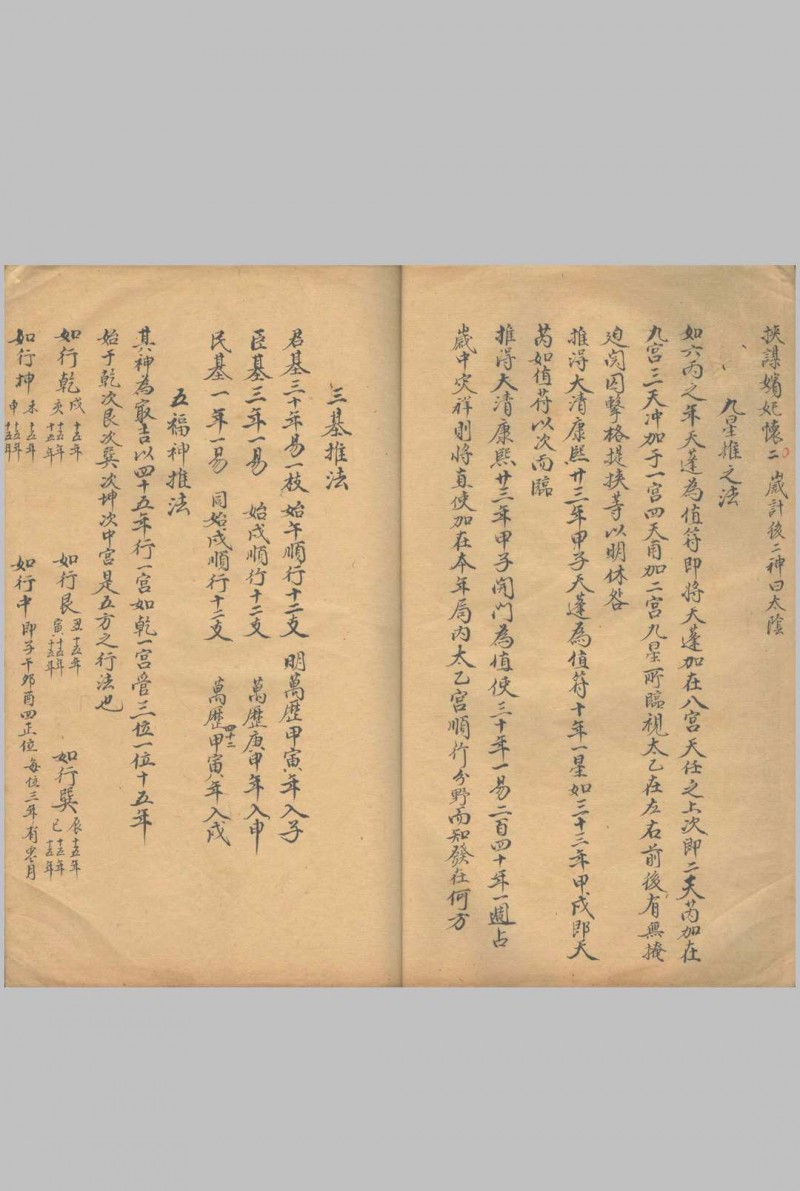 挾謀婿妃懷二　歲計後二神曰太陰
九星推之法
如六丙之年天蓬為值符即將天蓬加在八宮天任之上次即二天芮加在
九宮三天冲加于一宮四天甫加二宮九星所臨視太乙在左右前後有無掩
迫関囚擊格提挾等以明休咎
推得大清康熙廿三年甲子天蓬為值符十年一星如三十三年甲戌即天
芮如值符以次而臨
推得大清康熙廿三年甲子開門為值使三十年一易二百四十年一週占
歲中灾祥則將直使加在本年局内太乙宮順行分野而知發在何方
三基推法
君基三十年易一枝　始午順行十二支　明萬歷甲寅年入子
臣基三年一易　始戌順行十二支　萬歷庚申年入申
民基一年一易　同始戌順行十二支　萬歷四十二甲寅年入戌
五福神推法
其神為最吉以四十五年行一宮如乾一宮管三位一位十五年
始于乾次艮次巽次坤次中宮是五方之行法也
如行乾　戌十五年　亥十五年　十五年　如行艮　丑十五年　寅十五年　十五年　如行巽　辰十五年　巳十五年　十五年
如行坤　未十五年　申十五年　十五年　如行中　即子午卯酉四正位每位三年有零月